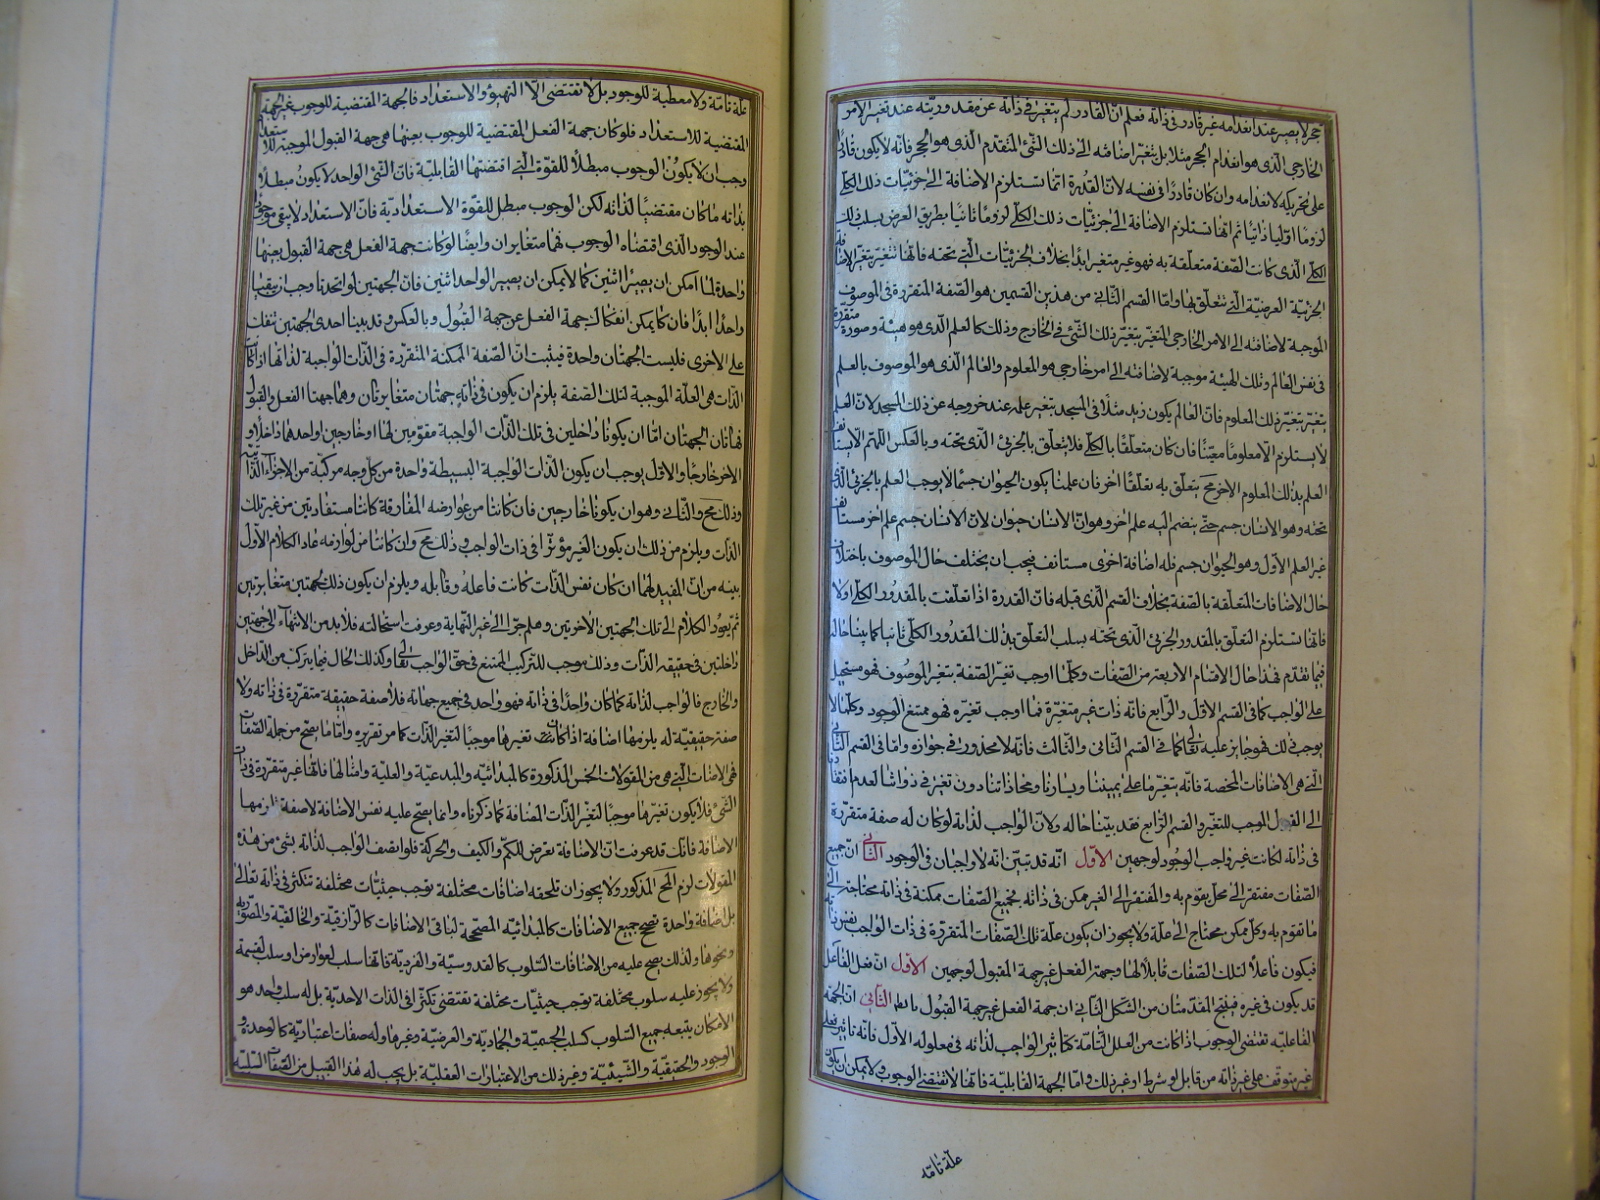 حجر لا يصير عند انعدامه غير قادر فى ذاته فعلم انّ القادر لم يتغير فى ذاته عن مقدوريته عند تغير الامر
الخارجي الذى هو انعدام الحجر مثلا بل تتغير اضافته الى ذلك الشئ المتقدم الذى هو الحجر فانه لا يكون قادرًا
على تحريكه لانعدامه وان كان قادرًا فى نفسه لانّ القدرة انما تستلزم الاضافة الى جزئيات ذلك الكلّى
لزومًا اوّليا ذاتيا ثم انها تستلزم الاضافة الى جزئيات ذلك الكلّى لزومًا ثانيًا بطريق العرض بسبب ذلك
الكلّى الذى كانت الصّفة متعلّقة به فهو غير متغير ابدًا بخلاف الجزئيّات الّتى تحته فانّها تتغيّر بتغير الاضافة
الجزئيّة العرضيّة الّتى تتعلّق بها وامّا القسم الثانى من هذين القسمين هو الصّفة المتقررة فى الموصوف
الموجبة لاضافته الى الامر الخارجى المتغير بتغيّر ذلك الشّئ فى الخارج وذلك كالعلم الّذى هو هيئة وصورة متقرّرة
فى نفس العالم وتلك الهيئة موجبة لاضافته الى امر خارجى هو المعلوم والعالم الّذى هو الموصوف بالعلم
يتغيّر بتغيّر ذلك المعلوم فانّ العالم بكون زيد مثلًا فى المسجد يتغير علمه عند خروجه عن ذلك المسجد لانّ العلم
لا يستلزم الّا معلومًا معيّنًا فان كان متعلّقًا بالكلّى فلا يتعلّق بالجزئى الّذى تحته وبالعكس اللّهمّ الّا يستأنف
العلم بذلك المعلوم الاخر مح يتعلّق به تعلّقًا اخر فان علمنا بكون الحيوان جسمًا لا يوجب العلم بالجزئى الّذى
تحته وهو الانسان جسم حتّى ينضم اليه علم اخر وهو انّ الانسان حيوان لانّ الانسان جسم علم اخر مستأنف
غير العلم الاوّل وهو الحيوان جسم فله اضافة اخرى مستانفة فيجب ان يختلف حال الموصوف باختلاف
حال الاضافات المتعلّقة بالصّفة بخلاف القسم الّذى قبله فانّ القدرة اذا تعلّقت بالمقدور الكلّى اوّلا
فانّها تستلزم التعلّق بالمقدور الجزئى الّذى تحته بسبب التعلّق بذلك المقدور الكلّى ثانيا كما بيّنا حاله
فيما تقدّم فهذا حال الاقسام الاربعة من الصّفات وكلّما اوجب تغيّر الصّفة بتغير الموصوف فهو مستحيل
على الواجب كما فى القسم الاوّل والرّابع فانّه ذات غير متغيّرة فما اوجب تغيّره فهو ممتنع الوجود وكلّما لا
يوجب ذلك فهو جايز عليه تعالى كما فى القسم الثّانى والثّالث فانّه لا محذور فى جوازه وامّا فى القسم الثّانى
الّتى هى الاضافات المحضة فانّه يتغيّر ما على يميننا ويسارنا ومحاذاتنا دون تغيّر فى ذواتنا لعدم افتقارنا
الى القبول الموجب للتغير والقسم الرّابع فقد بيّنّا حاله ولانّ الواجب لذاته لو كان له صفه متقررة
فى ذاته لكانت غير واجب الوجود لوجهين الاوّل انّه قد تبيّن انّه لا واجبان فى الوجود الثّانى انّ جميع
الصّفات مفتقر الى محلّ يقوم به والمفتقر الى الغير ممكن فى ذاته فجميع الصّفات ممكنة فى ذاته محتاجة الى
ما تقوم به وكلّ ممكن محتاج الى علّة ولا يجوز ان يكون علّة تلك الصّفات المتقررة فى ذات الواجب نفس ذاته
فيكون فاعلًا لتلك الصّفات قابلًا لها وجهة الفعل غير جهة القبول لوجهين الاوّل انّ فعل الفاعل
قد يكون فى غيره فينتج المقدّمتان من الشّكل الثّانى ان جهة الفعل غير جهة القبول الثّانى انّ الجهة
الفاعليّه تقتضى الوجوب اذا كانت من العلل التّامّة كتاثير الواجب لذاته فى معلوله الأوّل فانّه تاثير فعلى
غير متوقّف على غير ذاته من قابل او شرط او غير ذلك وامّا الجهة القابليّة فانّها لا تقتضى الوجوب ولا يمكن ان يكون
علّة تامّه
علّة تامّة ولا معطية للوجود بل لا تقتضى الّا التهيؤ والاستعداد فالجهة المقتضية للوجوب غير الجهة
المقتضية للاستعداد فلو كان جهة الفعل المقتضية للوجوب بعينها هى جهة القبول الموجبة للاستعداد
وجب ان لا يكون الوجوب مبطلًا للقوّة الّتى اقتضتها القابليّة فانّ الشّئ الواحد لا يكون مبطلًا
بذاته ما كان مقتضيًا لذاته لكن الوجوب مبطل للقوّة الاستعداديّة فانّ الاستعداد لا يبقى موجودًا
عند الوجود الّذى اقتضاه الوجوب فهما متغايران وايضًا لو كانت جهة الفعل هى جهة القبول بعينها
واحدة لما امكن ان يصير اثنين كما لا يمكن ان يصير الواحد اثنين فانّ الجهتين لو اتحدتا وجب ان يبقيا
واحدًا ابدًا فان كان يمكن انفكاك جهة الفعل عن جهة القبول وبالعكس وقد بينا احدى الجهتين تنفك
على الاخرى فليست الجهتان واحدة فيثبت انّ الصّفة الممكنة المتقررة فى الذّات الواجبة لذاتها اذا كانت
الذّات هى العلّة الموجبة لتلك الصّفة يلزم ان يكون فى ذاته جهتان متغايرتان وهما جهتا الفعل والقبول
فهاتان الجهتان امّا ان يكونا داخلين فى تلك الذّات الواجبة مقوّمين لها او خارجين او احدهما داخلًا و
الاخر خارجًا والاوّل يوجب ان يكون الذّات الواجبة البسيطة واحدة من كلّ وجه مركّبة من الاجزاء الذّاتية
وذلك مح والثّانى وهو ان يكونا خارجين فان كانتا من عوارضه المفارقة كانتا مستفادتين من غير تلك
الذّات ويلزم من ذلك ان يكون الغير مؤثّرًا فى ذات الواجب وذلك مح وان كانتا من لوازمه عاد الكلام الاوّل
بعينه من انّ المفيد لهما ان كان نفس الذّات كانت فاعله وقابله ويلزم ان يكون ذلك بجهتين متغايرتين
ثمّ يعود الكلام الى تلك الجهتين الأخريين وهلمّ جرّا الى غير النّهاية وعرفت استحالته فلا بد من الانتهاء الى جهتين
داخلتين فى حقيقة الذّات وذلك موجب للتركيب الممتنع فى حقّ الواجب تعالى وكذلك الحال فيما يتركب من الدّاخل
والخارج فالواجب لذاته كما كان واحدًا فى ذاته فهو واحد فى جميع جهاته فلا صفة حقيقة متقررة فى ذاته ولا
صفة حقيقيّة له يلزمها اضافة اذا كانت تغيرها موجبًا لتغير الذّات كما مر تقريره وامّا ما يصحّ من جملة الصّفات
فهى الاضافات الّتى هى من المقولات الخمس المذكورة كالمبدائيّة والمبدعيّة والعليّة وامثالها فانّها غير متقررة فى ذات
الشّئ فلا يكون تغيّرها موجبًا لتغيّر الذّات المضافة كما ذكرناه وانما يصحّ عليه نفس الاضافة لا صفة تلزمها
الاضافة فانّك قد عرفت انّ الاضافة تعرض للكمّ والكيف والحركة فلو اتّصف الواجب لذاته بشئ من هذه
المقولات لزم المح المذكور ولا يجوز ان تلحقه اضافات مختلفة توجب حيثيّات مختلفة تتكثّر فى ذاته تعالى
بل اضافة واحدة تصحّح جميع الاضافات كالمبدائيّه المصحّحة لباقى الاضافات كالرّازقيّة والخالقيّة والمصوّريّة
ونحوها ولذلك يصحّ عليه من الاضافات السّلوب كالقدوسيّة والفرديّة فانّها سلب لعوارض او سلب لقسمة
ولا يجوز عليه سلوب مختلفة توجب حيثيّات مختلفة تقتضى تكثّرًا فى الذات الاحديّة بل له سلب واحد هو
الامكان يتبعه جميع السّلوب كسلب الجسميّة والجماديّة والعرضيّة وغيرها وله صفات اعتباريّة كالوحدة و
الوجود والحقيقيّة والشّيئيّة وغير ذلك من الاعتبارات العقليّة بل يجب له هذا القبيل من الصّفات السّلبيّة